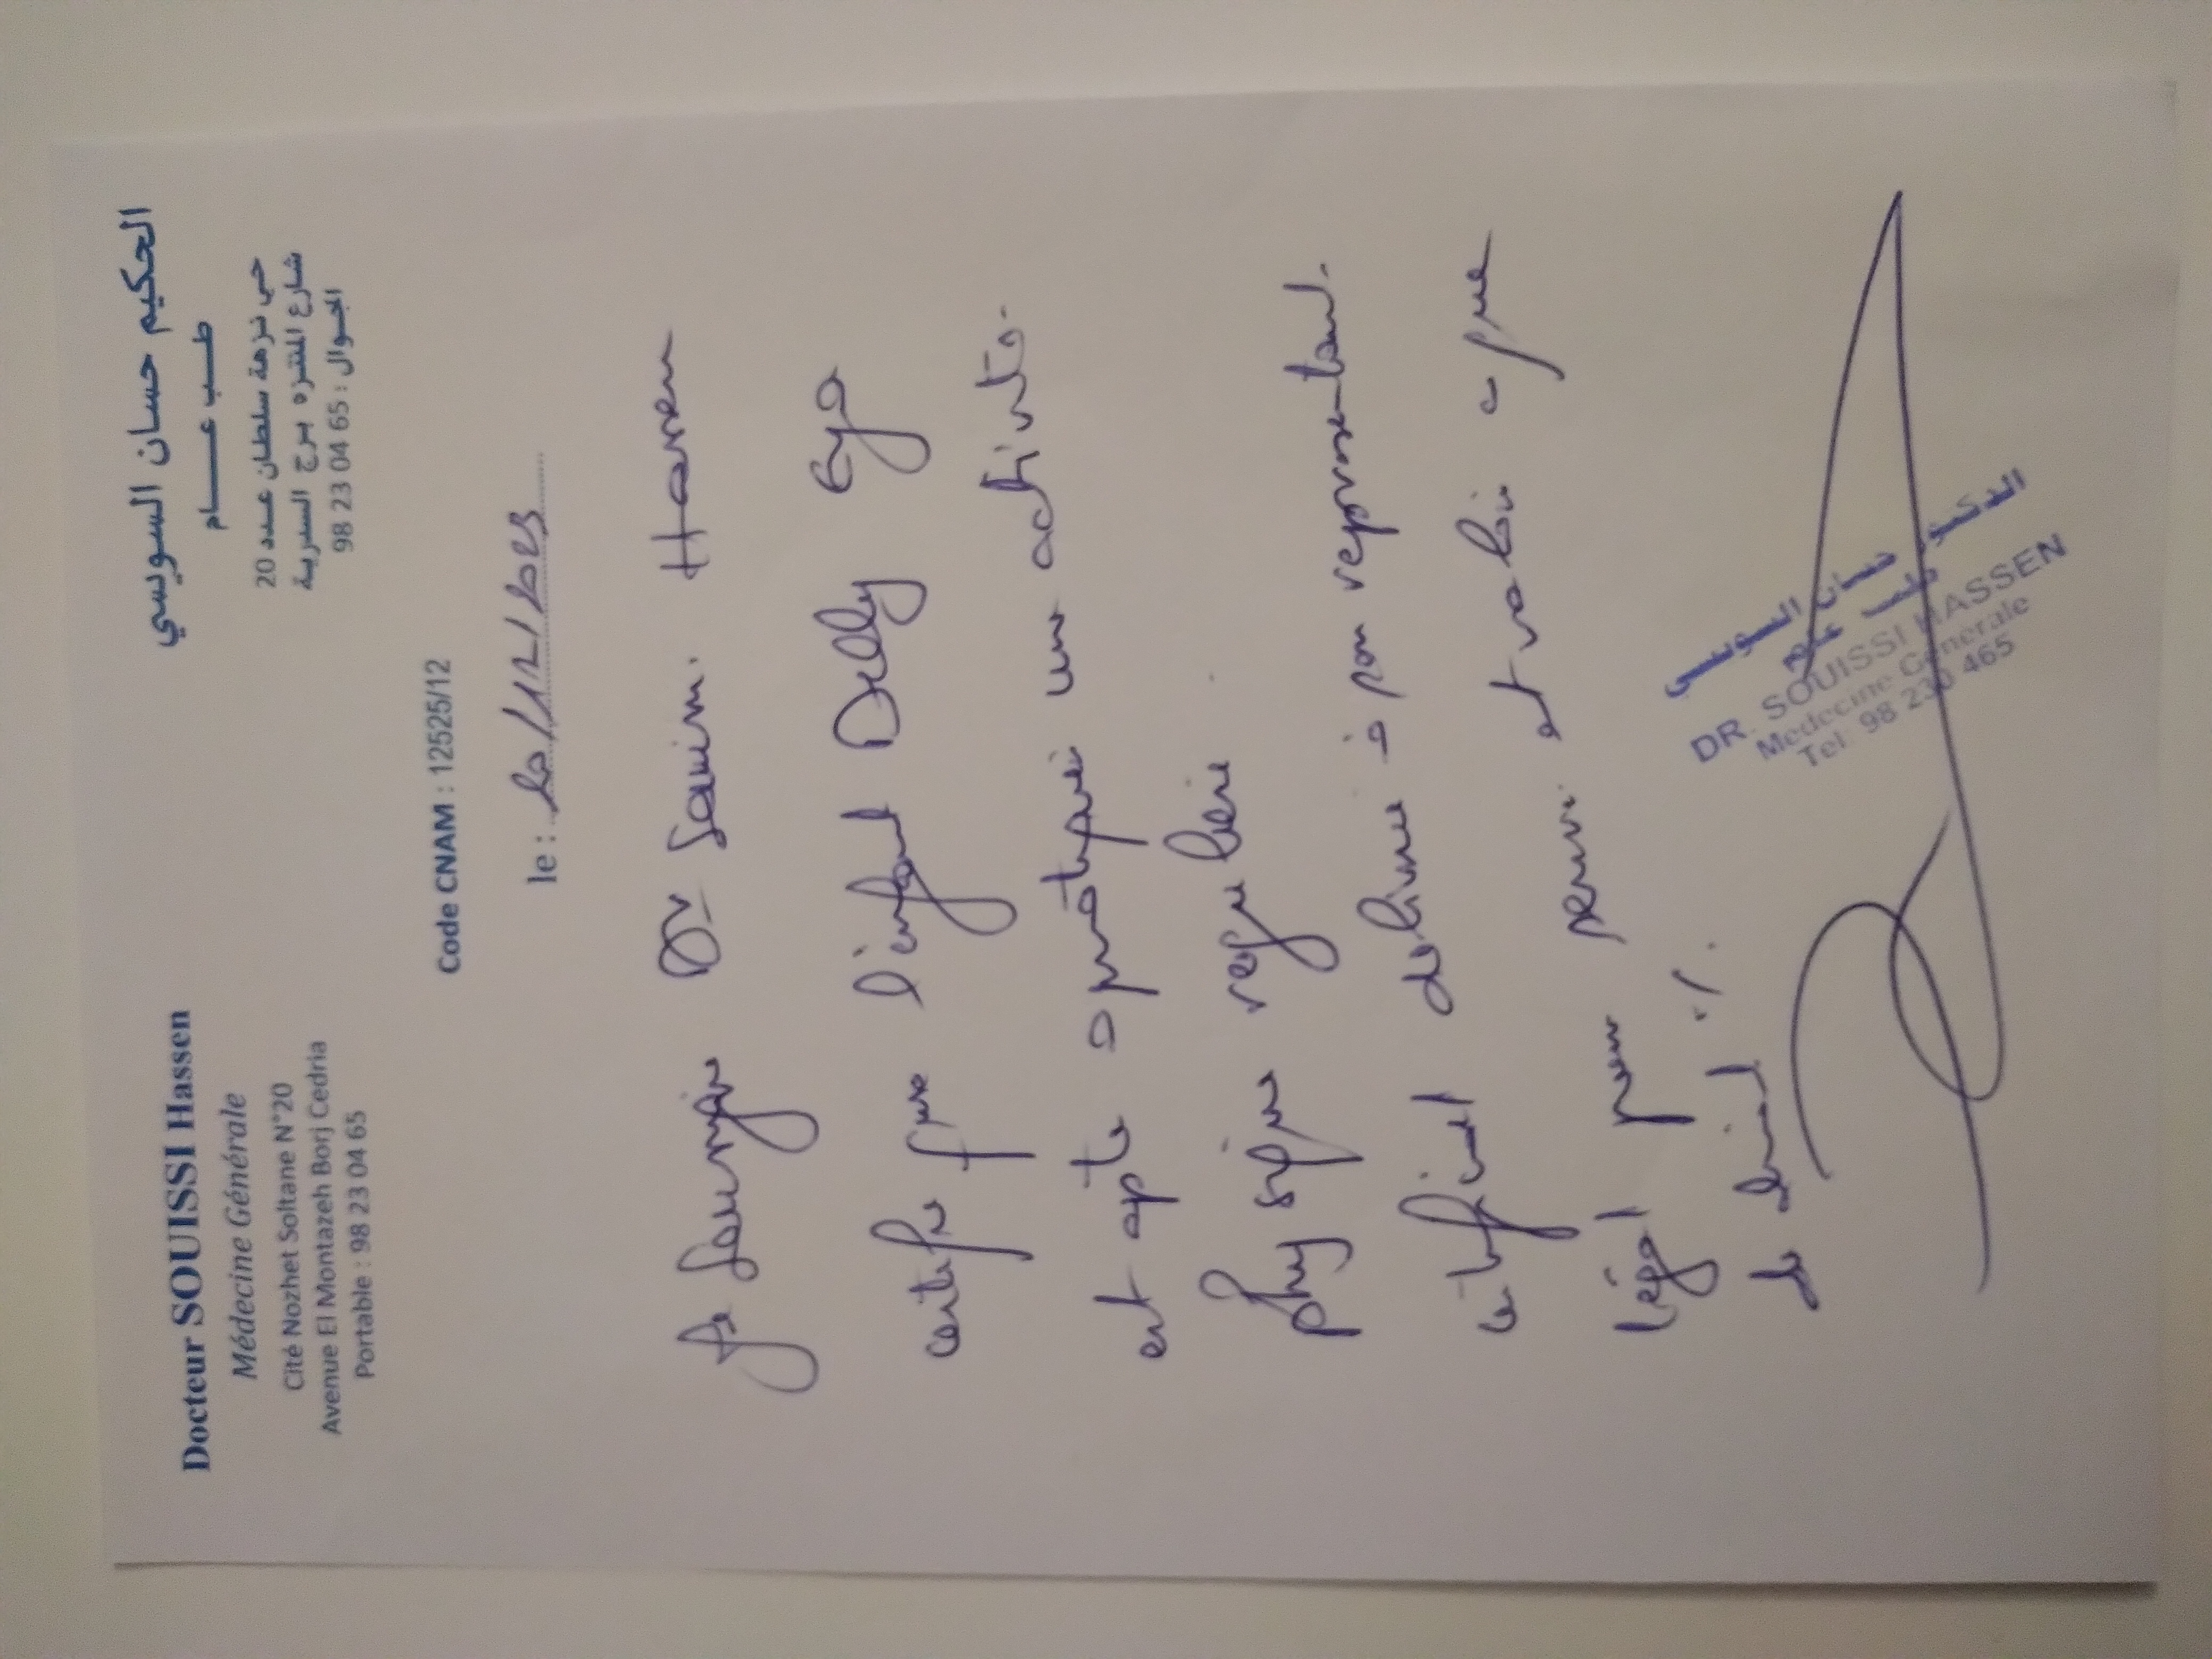 Docteur SOUISSI Hassen
Médecine Générale
Cité Nozhet Soltane N°20
Avenue El Montazeh Borj Cedria
Portable : 98 23 04 65
الحكيم حسان السويسي
طـــب عـــــام
حي نزهة سلطان عـدد 20
شارع المنتزه برج السدرية
الجـوال : 98 23 04 65
Code CNAM : 12525/12
le : 20/12/2023
Je soussigné Dr Souissi Hassen
certifie que l'enfant Delly Eya
est apte a pratiquer une activité
physique régulière
certificat délivré à son représentant
légal pour servir et valoir ce que
de droit ./.
الدكتور حسان السويسي
طب عام
DR. SOUISSI HASSEN
Médecine Générale
Tel: 98 230 465